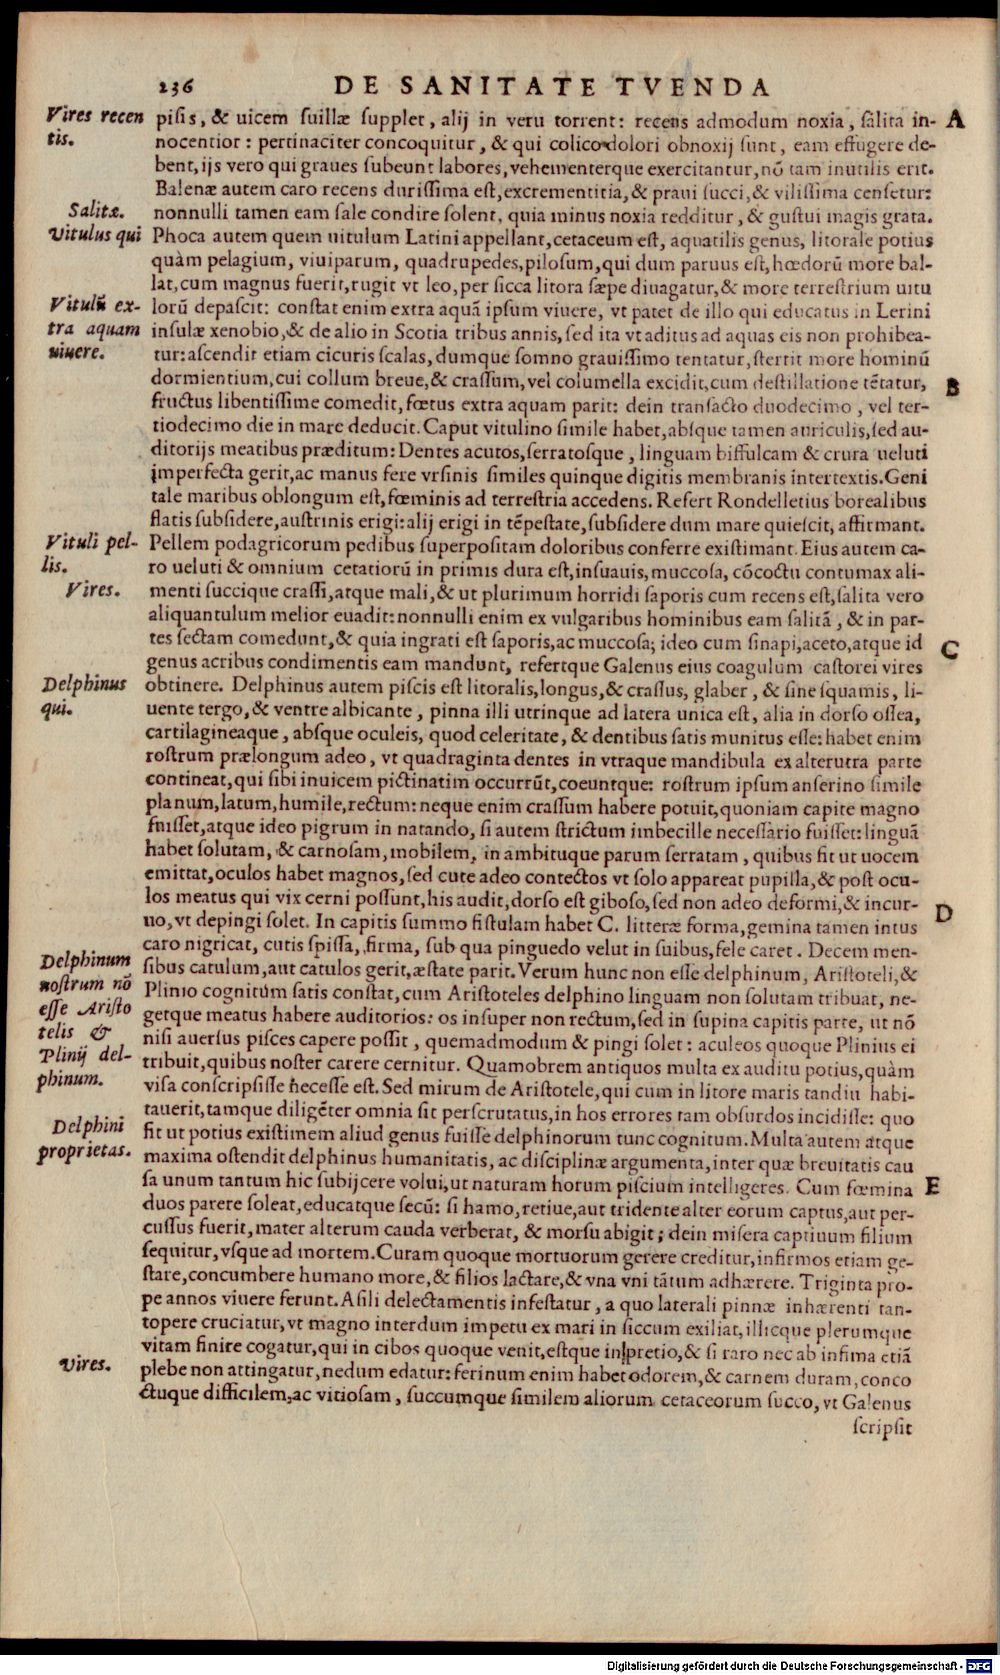 236 DE SANITATE TVENDA
Vires recen
tis.
pisis, & uicem suillæ supplet, alij in veru torrent: recens admodum noxia, salita in- A
nocentior: pertinaciter concoquitur, & qui colico dolori obnoxij sunt, eam effugere de-
bent, ijs vero qui graues subeunt labores, vehementerque exercitantur, nõ tam inutilis erit.
Balenæ autem caro recens durissima est, excrementitia, & praui succi, & vilissima censetur:
Salitæ.
nonnulli tamen eam sale condire solent, quia minus noxia redditur, & gustui magis grata.
Vitulus qui
Phoca autem quem uitulum Latini appellant, cetaceum est, aquatilis genus, litorale potius
quàm pelagium, viuiparum, quadrupedes, pilosum, qui dum paruus est, hœdorũ more bal-
lat, cum magnus fuerit, rugit vt leo, per sicca litora sæpe diuagatur, & more terrestrium uitu
Vitulũ ex-
tra aquam
uiuere.
lorũ depascit: constat enim extra aquã ipsum viuere, vt patet de illo qui educatus in Lerini
insulæ xenobio, & de alio in Scotia tribus annis, sed ita vt aditus ad aquas eis non prohibea-
tur: ascendit etiam cicuris scalas, dumque somno grauissimo tentatur, stertit more hominũ
dormientium, cui collum breue, & crassum, vel columella excidit, cum destillatione tẽtatur, B
fructus libentissime comedit, fœtus extra aquam parit: dein transacto duodecimo, vel ter-
tiodecimo die in mare deducit. Caput vitulino simile habet, absque tamen auriculis, sed au-
ditorijs meatibus præditum: Dentes acutos, serratosque, linguam bissulcam & crura ueluti
imperfecta gerit, ac manus fere vrsinis similes quinque digitis membranis intertextis. Geni
tale maribus oblongum est, fœminis ad terrestria accedens. Refert Rondelletius borealibus
flatis subsidere, austrinis erigi: alij erigi in tẽpestate, subsidere dum mare quiescit, affirmant.
Vituli pel-
lis.
Pellem podagricorum pedibus superpositam doloribus conferre existimant. Eius autem ca-
ro ueluti & omnium cetatiorũ in primis dura est, insuauis, muccosa, cõcoctu contumax ali-
Vires.
menti succique crassi, atque mali, & ut plurimum horridi saporis cum recens est, salita vero
aliquantulum melior euadit: nonnulli enim ex vulgaribus hominibus eam salitã, & in par-
tes sectam comedunt, & quia ingrati est saporis, ac muccosa; ideo cum sinapi, aceto, atque id C
genus acribus condimentis eam mandunt, refertque Galenus eius coagulum castorei vires
Delphinus
qui.
obtinere. Delphinus autem piscis est litoralis, longus, & crassus, glaber, & sine squamis, li-
uente tergo, & ventre albicante, pinna illi utrinque ad latera unica est, alia in dorso ossea,
cartilagineaque, absque oculeis, quod celeritate, & dentibus satis munitus esse: habet enim
rostrum prælongum adeo, vt quadraginta dentes in vtraque mandibula ex alterutra parte
contineat, qui sibi inuicem pictinatim occurrũt, coeuntque: rostrum ipsum anserino simile
planum, latum, humile, rectum: neque enim crassum habere potuit, quoniam capite magno
fuisset, atque ideo pigrum in natando, si autem strictum imbecille necessario fuisset: linguã
habet solutam, & carnosam, mobilem, in ambituque parum serratam, quibus fit ut uocem
emittat, oculos habet magnos, sed cute adeo contectos vt solo appareat pupilla, & post ocu-
los meatus qui vix cerni possunt, his audit, dorso est giboso, sed non adeo deformi, & incur- D
uo, vt depingi solet. In capitis summo fistulam habet C. litteræ forma, gemina tamen intus
caro nigricat, cutis spissa, firma, sub qua pinguedo velut in suibus, fele caret. Decem men-
Delphinum
nostrum nõ
esse Aristo
telis &
Plinij del-
phinum.
sibus catulum, aut catulos gerit, æstate parit. Verum hunc non esse delphinum, Aristoteli, &
Plinio cognitum satis constat, cum Aristoteles delphino linguam non solutam tribuat, ne-
getque meatus habere auditorios: os insuper non rectum, sed in supina capitis parte, ut nõ
nisi auersus pisces capere possit, quemadmodum & pingi solet: aculeos quoque Plinius ei
tribuit, quibus noster carere cernitur. Quamobrem antiquos multa ex auditu potius, quàm
visa conscripsisse necesse est. Sed mirum de Aristotele, qui cum in litore maris tandiu habi-
tauerit, tamque diligẽter omnia sit perscrutatus, in hos errores tam obsurdos incidisse: quo
Delphini
proprietas.
fit ut potius existimem aliud genus fuisse delphinorum tunc cognitum. Multa autem atque
maxima ostendit delphinus humanitatis, ac disciplinæ argumenta, inter quæ breuitatis cau
sa unum tantum hic subijcere volui, ut naturam horum piscium intelligeres. Cum fœmina E
duos parere soleat, educatque secũ: si hamo, retiue, aut tridente alter eorum captus, aut per-
cussus fuerit, mater alterum cauda verberat, & morsu abigit; dein misera captiuum filium
sequitur, vsque ad mortem. Curam quoque mortuorum gerere creditur, infirmos etiam ge-
stare, concumbere humano more, & filios lactare, & vna vni tãtum adhærere. Triginta pro-
pe annos viuere ferunt. Asili delectamentis infestatur, a quo laterali pinnæ inhærenti tan-
topere cruciatur, vt magno interdum impetu ex mari in siccum exiliat, illicque plerumque
vitam finire cogatur, qui in cibos quoque venit, estque in pretio, & si raro nec ab infima etiã
Vires.
plebe non attingatur, nedum edatur: ferinum enim habet odorem, & carnem duram, conco
ctuque difficilem, ac vitiosam, succumque similem aliorum cetaceorum succo, vt Galenus
scripsit
Digitalisierung gefördert durch die Deutsche Forschungsgemeinschaft - DFG